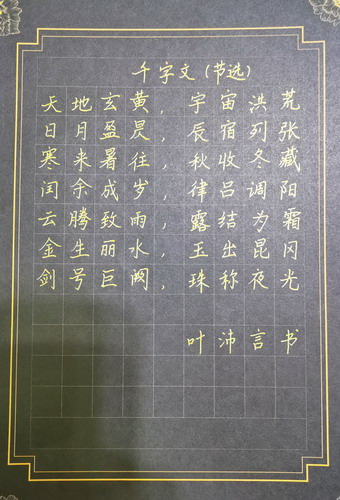 千字文(节选)
天地玄黄,宇宙洪荒
日月盈昃,辰宿列张
寒来暑往,秋收冬藏
闰余成岁,律吕调阳
云腾致雨,露结为霜
金生丽水,玉出昆冈
剑号巨阙,珠称夜光
叶沛言书